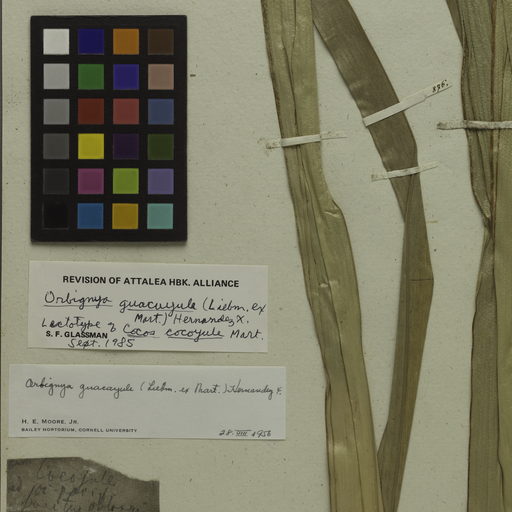 396.
REVISION OF ATTALEA HBK. ALLIANCE
Orbignya guacuyule (Liebm. ex
Mart.) Hernandez X.
Lectotype of Cocos cocoyule Mart.
S. F. GLASSMAN
Sept. 1985
Orbignya guacuyule (Liebm. ex Mart.) Hernandez X.
H. E. MOORE, JR.
BAILEY HORTORIUM, CORNELL UNIVERSITY
28 VIII 1956
Cocoyule